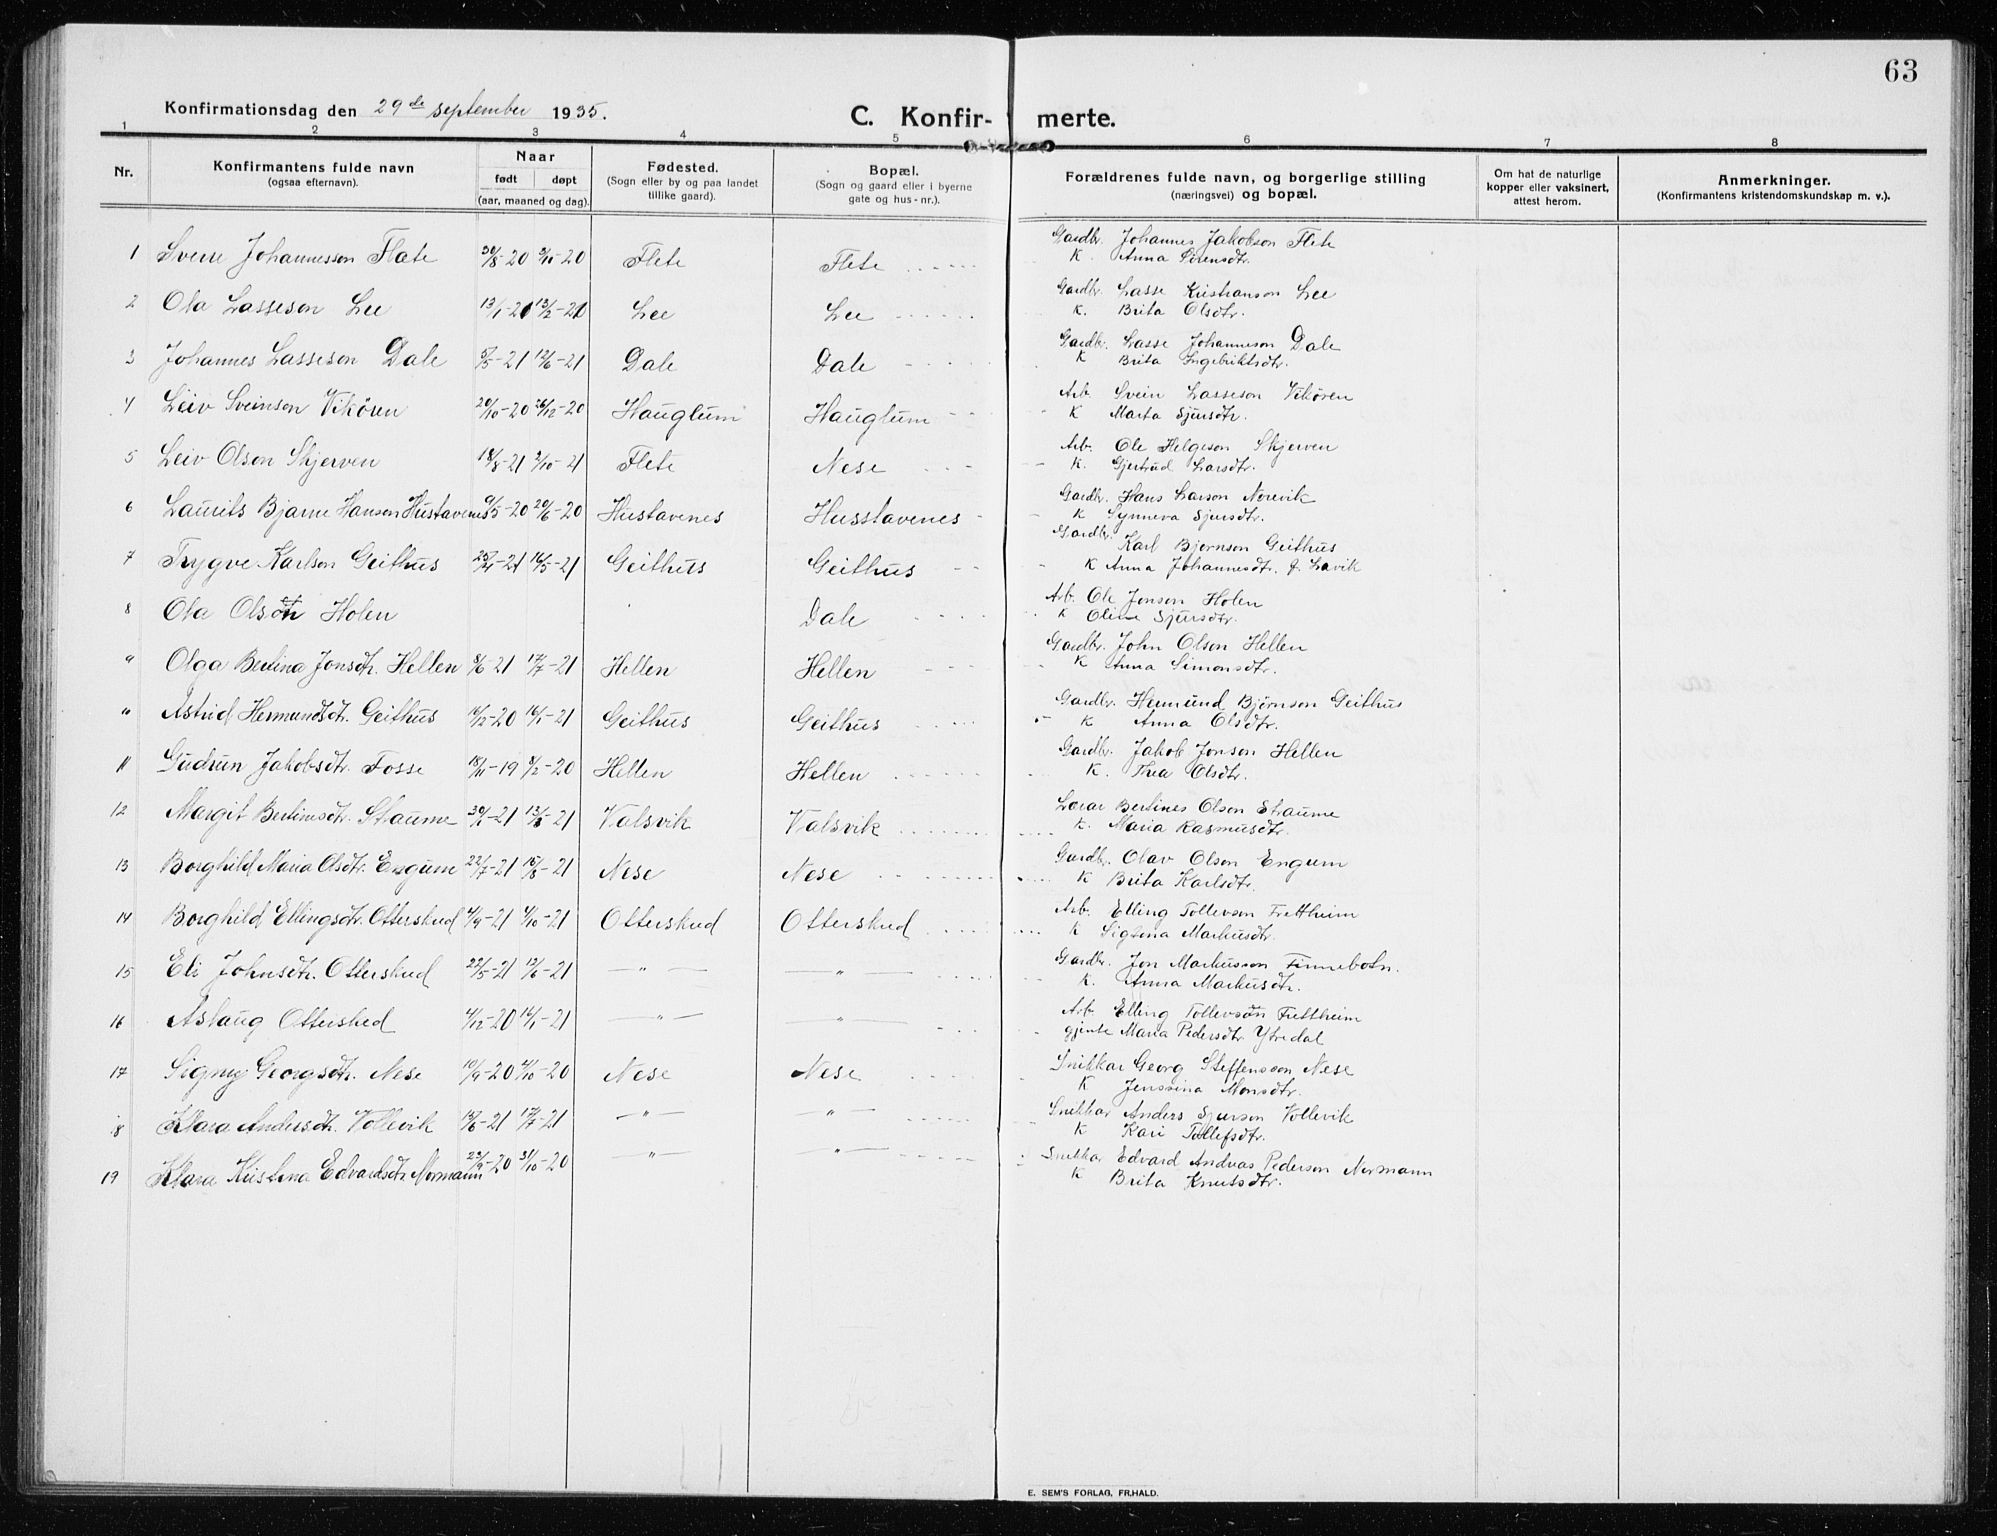 63
Konfirmationsdag den 29de september 1935.
C. Konfir- merte.
1 2 3 4 5 6 7 8
Nr.
Konfirmantens fulde navn
(ogsaa efternavn).
Naar
født døpt
(aar, maaned og dag).
Fødested.
(Sogn eller by og paa landet
tillike gaard).
Bopæl.
(Sogn og gaard eller i byerne
gate og hus-nr.).
Forældrenes fulde navn, og borgerlige stilling
(næringsvei) og bopæl.
Om hat de naturlige
kopper eller vaksinert,
attest herom.
Anmerkninger.
(Konfirmantens kristendomskundskap m. v.).
1 Sverre Johannesson Flete 30/8-20 3/10-20 Flete Flete Gardbr. Johannes Jakobson Flete
K. Anna Sørensdtr.
2 Ola Lasseson Lee 13/1-21 13/2-21 Lee Lee Gardbr. Lasse Kristianson Lee
K. Brita Olsdtr.
3 Johannes Lasseson Dale 5/5-21 12/6-21 Dale Dale Gardbr. Lasse Johanneson Dale
K Brita Ingebriktsdtr.
4 Leiv Sveinson Vikøren 20/10-20 26/12-20 Hauglum Hauglum Arb. Svein Lasseson Vikøren
K Marta Sjursdtr.
5 Leiv Olson Skjerven 18/8-21 2/10-21 Flete Nese Arb. Ole Helgeson Skjerven
K. Gjertrud Larsdtr.
6 Laurits Bjarne Hanson Hustavenes 9/5-20 20/6-20 Hustavenes Husstavenes Gardbr. Hans Larson Norevik
K Synneva Sjursdtr.
7 Trygve Karlson Geithus 25/4-21 16/5-21 Geithus Geithus Gardbr. Karl Bjørnson Geithus
K Anna Johannesdtr. f. Lavik
8 Ola Olson Holen Dale Arb. Ole Jonson Holen
K Oline Sjursdtr.
9 Olga Berlina Jonsdtr. Hellen 8/6-21 17/7-21 Hellen Hellen Gardbr. John Olson Hellen
K Anna Simonsdtr.
" Astrid Hermundsdtr. Geithus 16/12-20 16/1-21 Geithus Geithus Gardbr. Hermund Bjørnson Geithus
K Anna Olsdtr.
11 Gudrun Jakobsdtr. Fosse 18/11-19 8/2-20 Hellen Hellen Gardbr. Jakob Jonson Hellen
K. Thea Olsdtr.
12 Margit Bertinesdtr. Straume 21 21 Valsvik Valsvik Lærar Bertines Olson Straume
K. Maria Rasmusdtr.
13 Borghild Maria Olsdtr. Engum 22/7-21 21 Nese Nese Gardbr. Olav Olson Engum
K Brita Karlsdtr.
14 Borghild Ellingsdtr. Otterskred 4/9-21 21 Otterskred Otterskred Arb. Elling Tollevson Frettheim
K Markusdtr.
15 Eli Johnsdtr. Otterskred 22/5-21 12/6-21 — " — " Gardbr. Jon Markusson Finnebotn.
K. Anna Markusdtr.
16 Aslaug Otterskred 4/12-20 16/1-21 — " — — " — Arb. Elling Tollevson Frettheim
gjente Maria Pedersdtr. Ytredal
17 Signy Georgsdtr. Nese 10/9-20 20 Nese Nese Snikkar Georg Steffensson Nese
K Jenssina Monsdtr.
18 Klara Andersdtr. Vollevik 21 17/7-21 — " — — " — Snikkar Anders Sjurson Vollevik
K Kari Tollefsdtr.
19 Klara Kristina Edvardsdtr Normann 23/9-20 31/10-20 — " — — " — Snikkar Edvard Andreas Pederson Normann
K Brita Knutsdtr.
E. SEM'S FORLAG, FR.HALD.